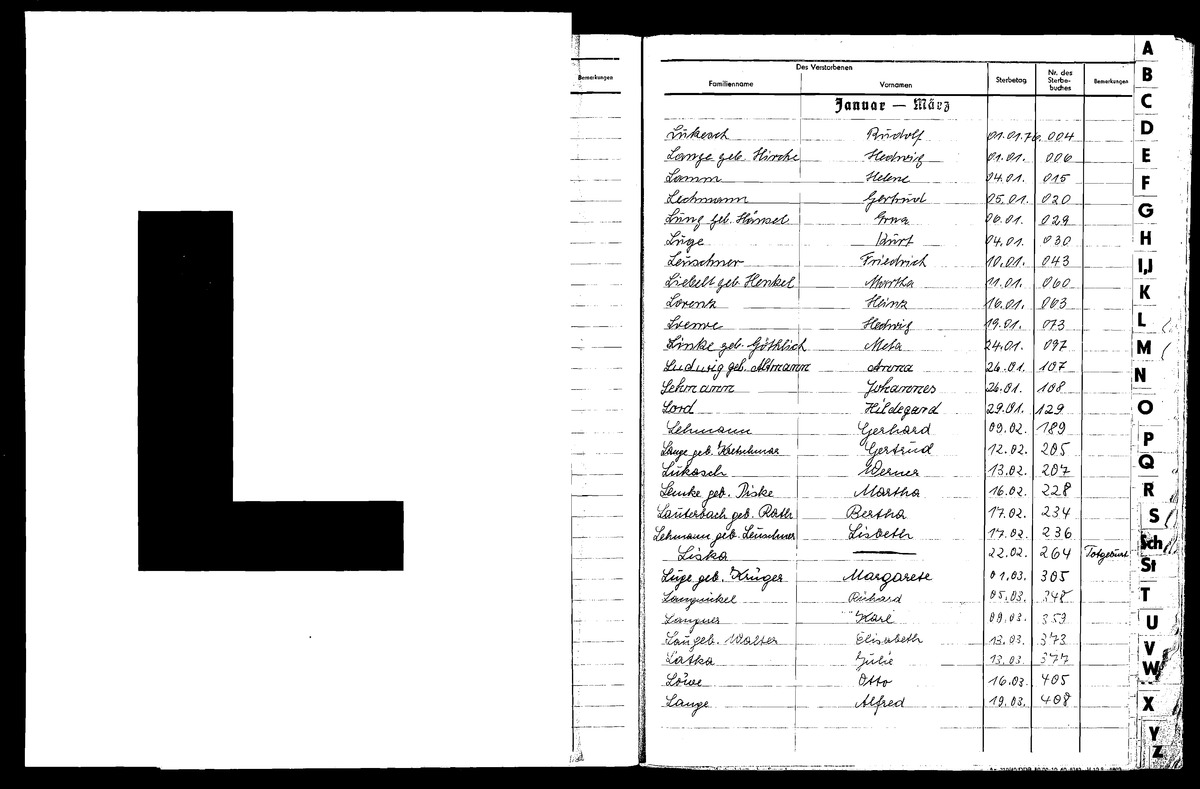 L
Bemerkungen
Des Verstorbenen
Familienname Vornamen Sterbetag Nr. des Sterbe-buches Bemerkungen
Januar — März
Lukesch Rudolf 01.01.76. 004
Lange geb. Hirche Hedwig 01.01. 006
Lamm Helene 04.01. 015
Lechmann Gertrud 05.01. 020
Lung geb. Hänsel Erna 06.01. 029
Luge Kurt 04.01. 030
Leuschner Friedrich 10.01. 043
Liebelt geb Henkel Martha 11.01. 060
Lorenz Heinz 16.01. 063
Hedwig 19.01. 073
Linke geb. Göthlich Meta 24.01. 097
Ludwig geb. Altmann Anna 26.01. 107
Lehmann Johannes 26.01. 108
Lord Hildegard 29.01. 129
Lehmann Gerhard 09.02. 189
Lange geb. Kretschmar Gertrud 12.02. 205
Lukasch Werner 13.02. 207
Lemke geb. Piske Martha 16.02. 228
Lauterbach geb. Räth Bertha 17.02. 234
Lehmann geb. Leuschner Lisbeth 17.02. 236
Liska — 22.02. 264 Totgeburt
Luge geb. Krüger Margarete 01.03. 305
Langnickel Richard 05.03. 348
Langner Karl 09.03. 359
Lau geb. Walter Elisabeth 13.03. 373
Latka Julie 13.03. 377
Löwe Otto 16.03. 405
Lange Alfred 19.03. 408
A
B
C
D
E
F
G
H
I,J
K
L
M
N
O
P
Q
R
S
Sch
St
T
U
V
W
X
Y
Z